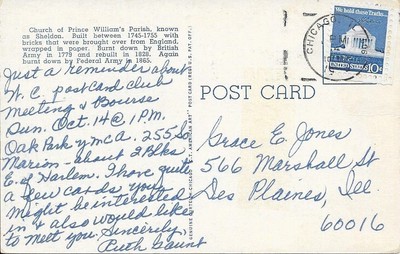 Church of Prince William's Parish, known
as Sheldon. Built between 1745-1755 with
bricks that were brought over from England,
wrapped in paper. Burnt down by British
Army in 1779 and rebuilt in 1828. Again
burnt down by Federal Army in 1865.
Just a reminder about
W.C. postcard club
meeting & Bourse
Sun. Oct. 14 @ 1 P.M.
Oak Park YMCA. 255 So.
Marion - about 2 Blks
E. of Harlem. I have quite
a few cards you
might be interested
in & also would like
to meet you. Sincerely,
Ruth Gaunt
POST CARD
CHICAGO
PM
We hold these Truths...
10c
Grace E. Jones
566 Marshall St
Des Plaines, Ill.
60016